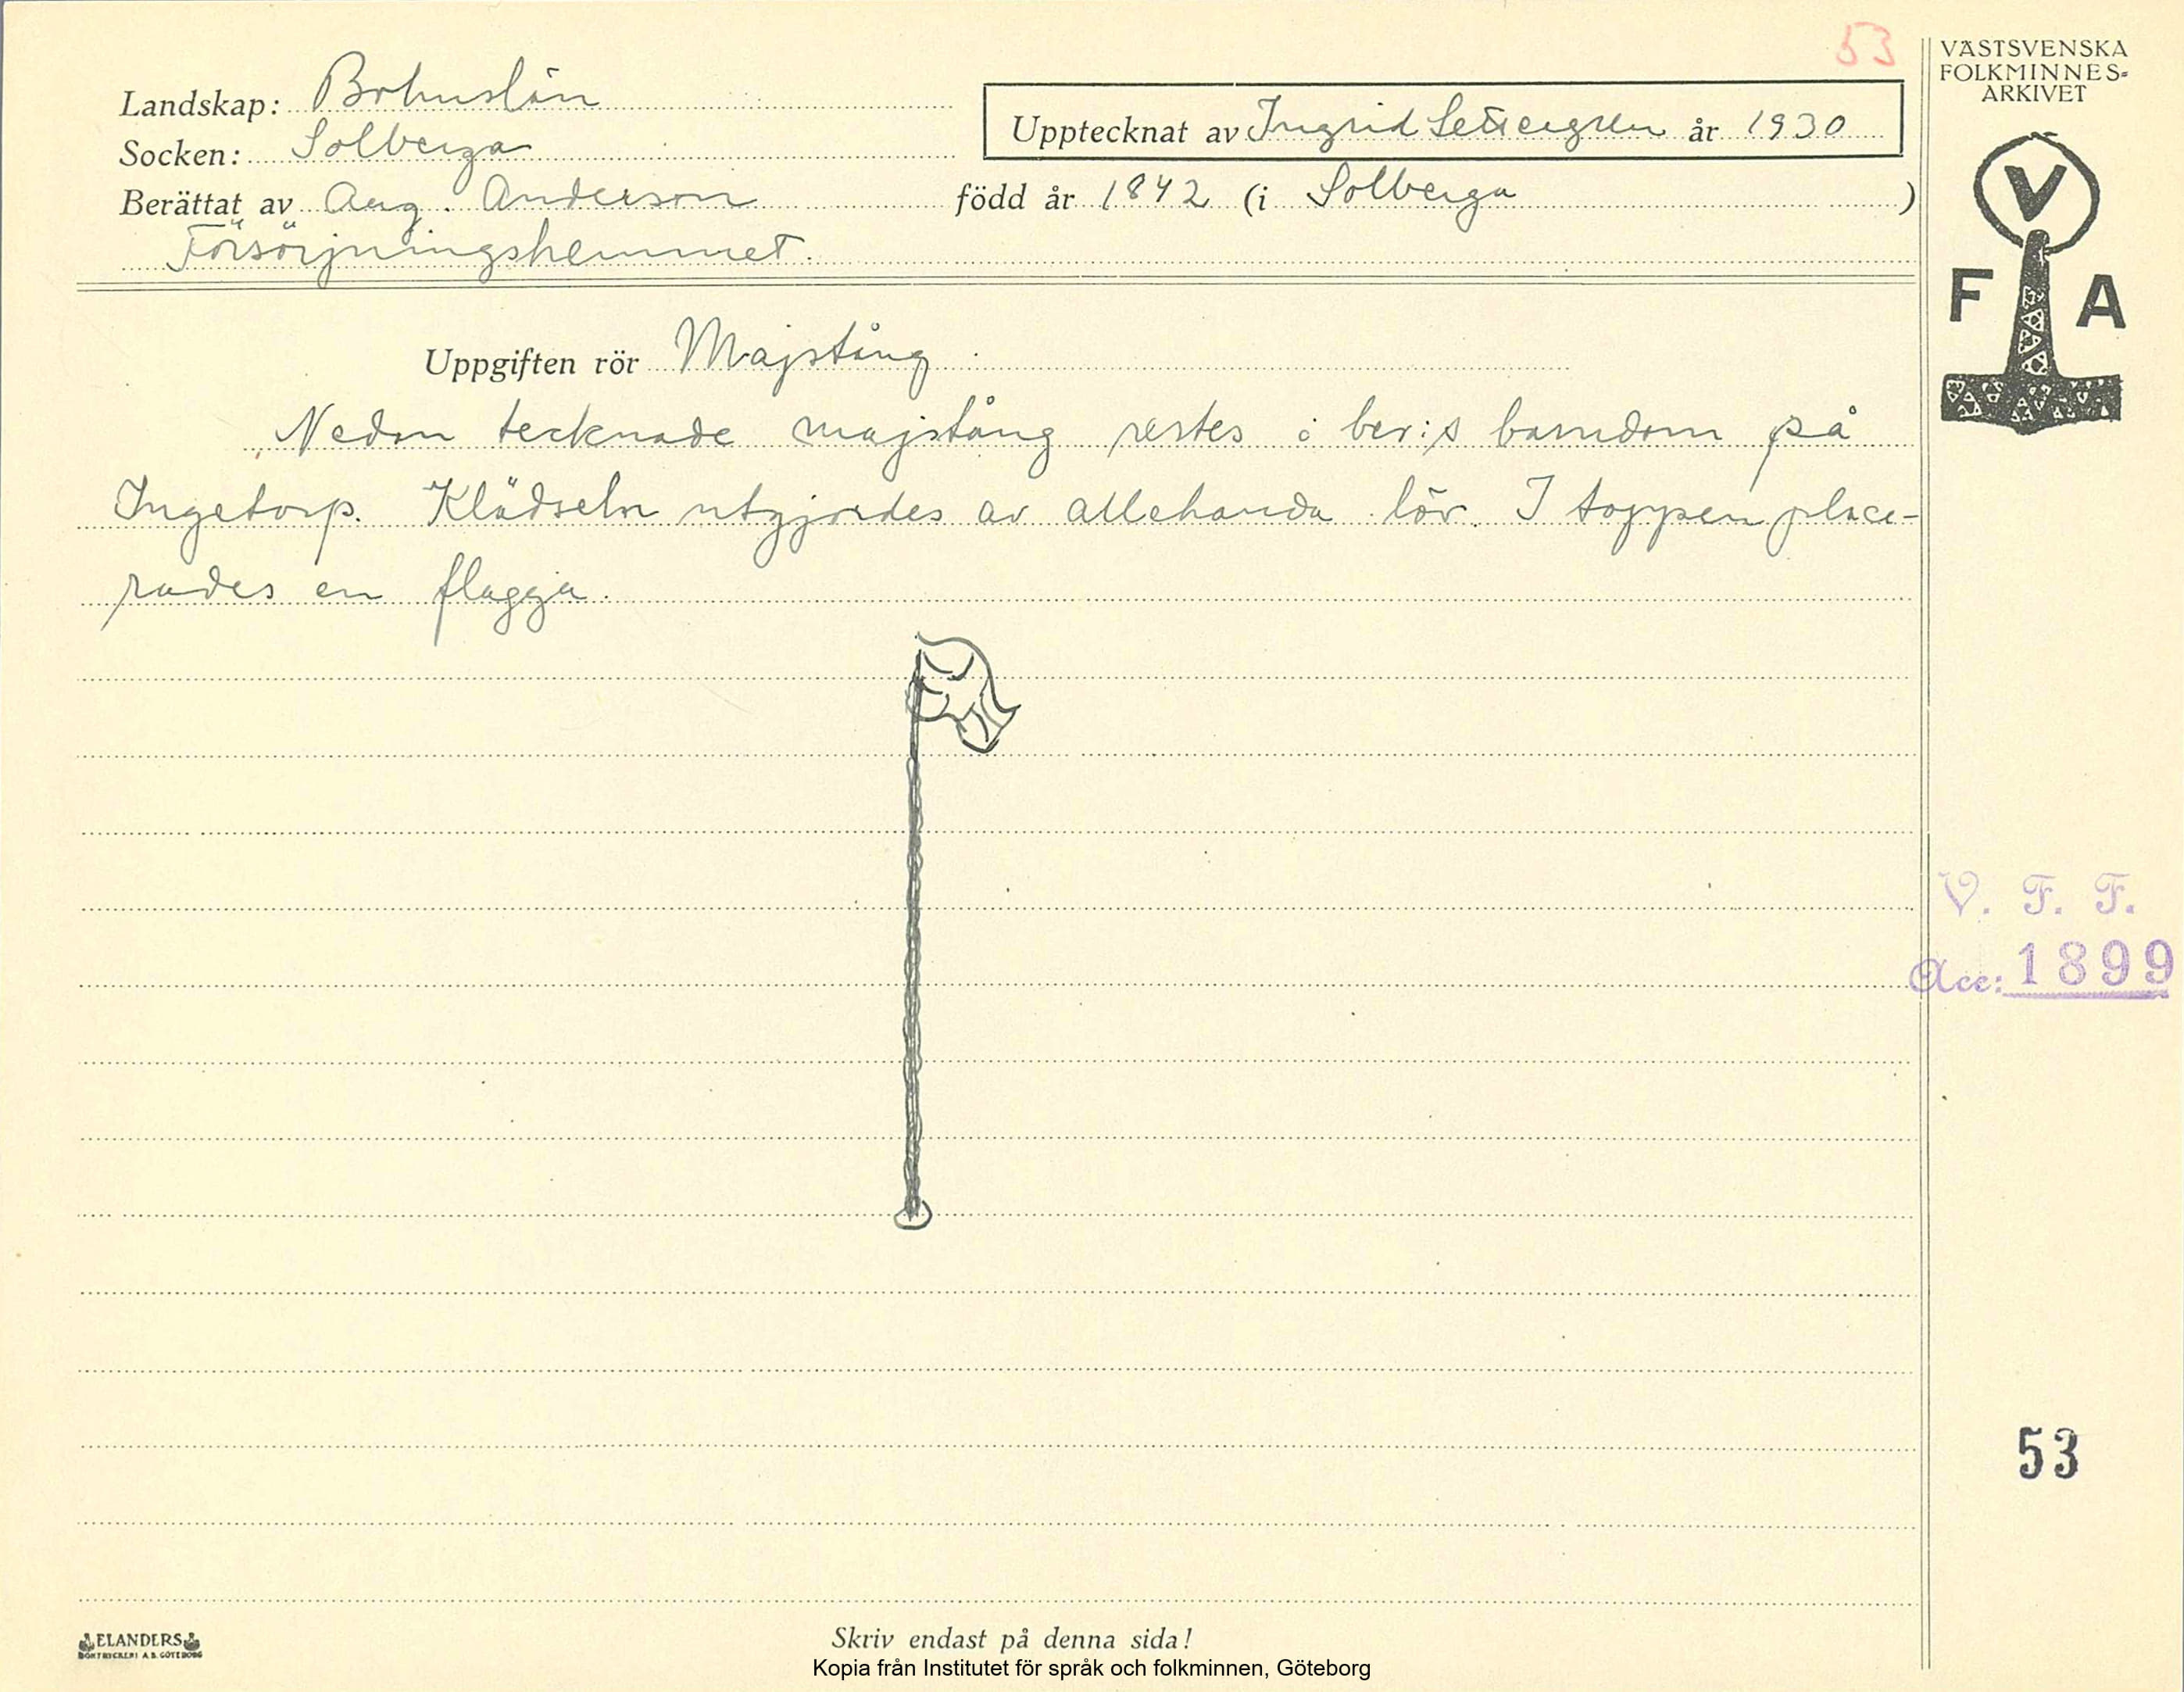 53
VÄSTSVENSKA
FOLKMINNES-
ARKIVET
Landskap: Bohuslän
Upptecknat av Ingrid Settergren år 1930
Socken: Solberga
Berättat av Aug. Anderson född år 1842 (i Solberga )
Försörjningshemmet.
V
F A
Uppgiften rör Majstång
Nedan tecknade majstång restes i ber:s barndom på
Ingetorp. Klädseln utgjordes av allehanda löv. I toppen place-
rades en flagga.
V. F. F.
Acc: 1899
53
ELANDERS
BOKTRYCKERI A.B. GÖTEBORG
Skriv endast på denna sida!
Kopia från Institutet för språk och folkminnen, Göteborg